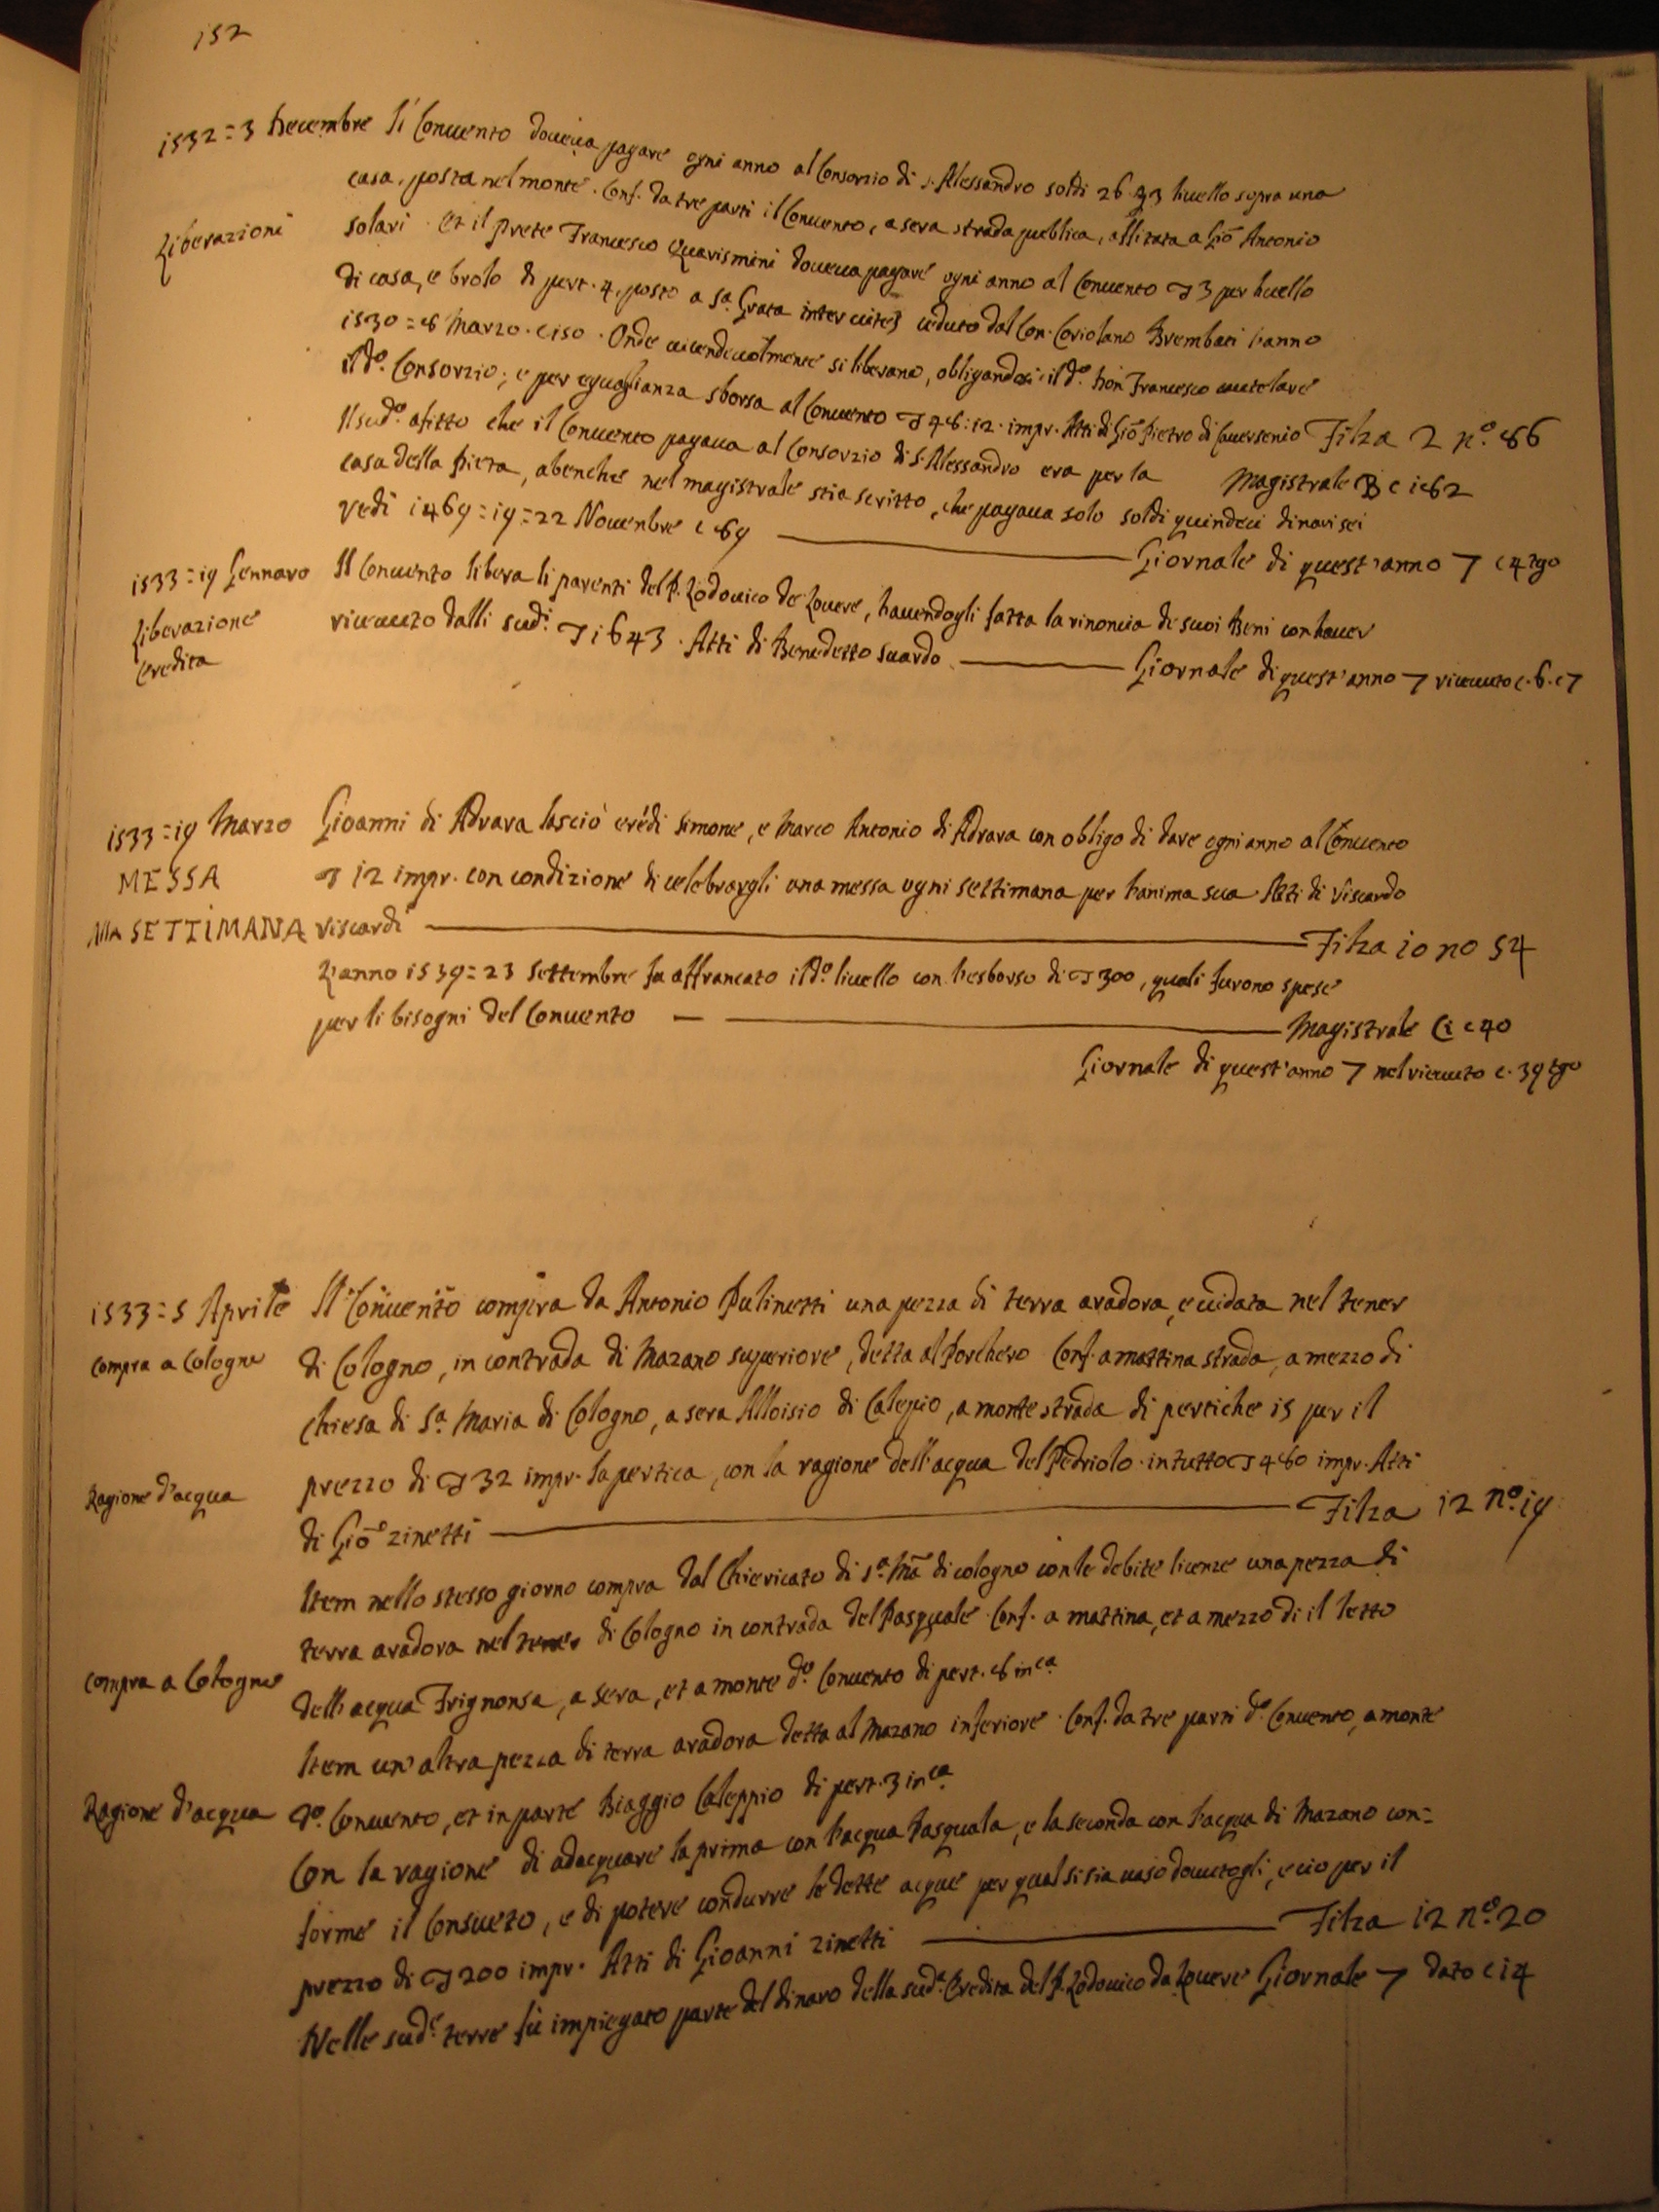 152
1532=3 Decembre Il Convento doveva pagare ogni anno al Consorzio di s. Alessandro soldi 26 livello sopra una
Liberazioni
casa, posta nel monte. Conf. da tre parti il Convento, a sera strada publica, affitata a Gio Antonio
solari. et il Prete Francesco Quarismini doveva pagare ogni anno al Convento 3 per livello
di casa, e brolo di pert. 4. posto a Sa. Grata inter vites ceduto dal Con. Coriolano Brembati l'anno
1530=8 Marzo. c150. Onde vicendevolmente si liberano, obligandosi il do. Don Francesco
il do. Consorzio; e per eguaglianza sborsa al Convento 48:12. impr. Atti di Gio Pietro di Caversenio Filza 2 no. 86
Il sudo. afitto che il Convento pagava al Consorzio di S. Alessandro era per la Magistrale B c 182
casa della Pieta, abenche nel magistrale stia scritto, che pagava solo soldi quindeci dinari sei
vedi 1469=19=22 Novembre c 89 Giornale di quest'anno 7 c 4 tgo
1533=19 Gennaro Il Convento libera li parenti del P. Lodovico de Lovere, havendogli fatta la rinoncia de suoi Beni con haver
Liberazione
Eredita
ricevuto dalli sudi. 1643. Atti di Benedetto Suardo Giornale di quest'anno 7 ricevuto c. 6. c 7
1533=19 Marzo Gioanni di Adrara lasciò eredi Simone, e Marco Antonio di Adrara con obligo di dare ogni anno al Convento
MESSA 12 impr. con condizione di celebrargli una messa ogni settimana per l'anima sua. Atti di Viscardo
Alla SETTIMANA Viscardi Filza 10 no 54
L'anno 1539=23 Settembre fu affrancato il do. livello con l'esborso di 300, quali furono spese
per li bisogni del Convento Magistrale C1 c 40
Giornale di quest'anno 7 nel ricevuto c. 39 tgo
1533=5 Aprile Il Convento compra da Antonio Pulinetti una pezza di terra aradora, e vidata nel tener
compra a Cologne di Cologno, in contrada di Mazano superiore, detta al Porchero Conf. a mattina strada, a mezzo di
Chiesa di Sa. Maria di Cologno, a sera Alloisio di Calepio, a monte strada di pertiche 15 per il
Ragione d'acqua prezzo di 32 impr. la pertica, con la ragione dell'acqua del Pedriolo. in tutto 480 impr. Atti
di Gio Zinetti Filza 12 no. 19
Item nello stesso giorno compra dal Chiericato di Sa. Ma di cologno con le debite licenze una pezza di
terra aradora nel tener di Cologno in contrada del Pasquale. Conf. a mattina, et a mezzo di il letto
compra a Cologne dell'acqua Frignonsa, a sera, et a monte do. Convento di pert. 8 inca.
Item un'altra pezza di terra aradora detta al Mazano inferiore. Conf. da tre parti do. Convento, a monte
Ragione d'acqua do. Convento, et in parte Biaggio Caleppio di pert. 3 inca.
Con la ragione di adacquare la prima con l'acqua Pasquala, e la seconda con l'acqua di Mazano con=
forme il Consueto, e di potere condurre le dette acque per qual si sia vaso dovutogli, e ciò per il
prezzo di 200 impr. Atti di Gioanni Zinetti Filza 12 no. 20
Nelle sude. terre fù impiegato parte del dinaro della suda. Eredita del P. Lodovico da Lovere Giornale 7 dato c 14